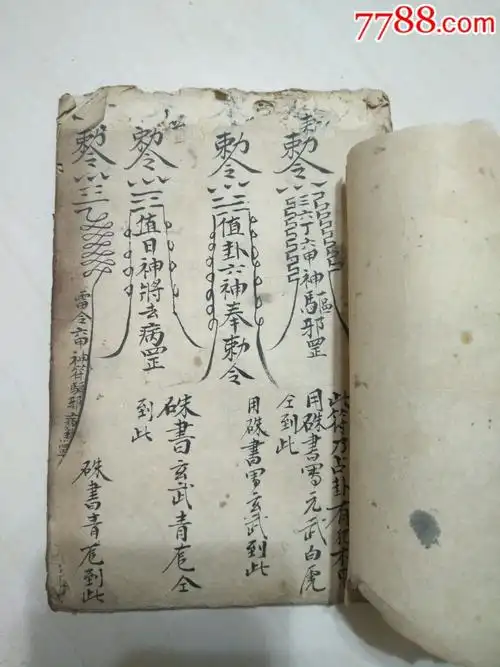 7788.com
勅令
六丁六甲神驅邪罡
此符乃占卦有
用硃書寫元武白虎
仝到此
勅令
值卦六神奉勅令
用硃書寫玄武到此
勅令
值日神將去病罡
硃書玄武青龍仝
到此
勅令
雷令六甲神符驅邪罡
硃書青龍到此